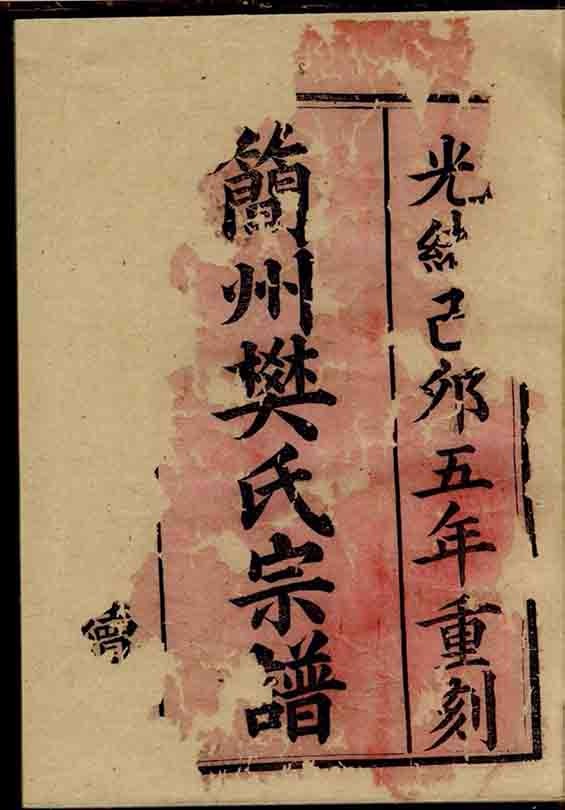 光緒己卯五年重刻
簡州樊氏宗譜